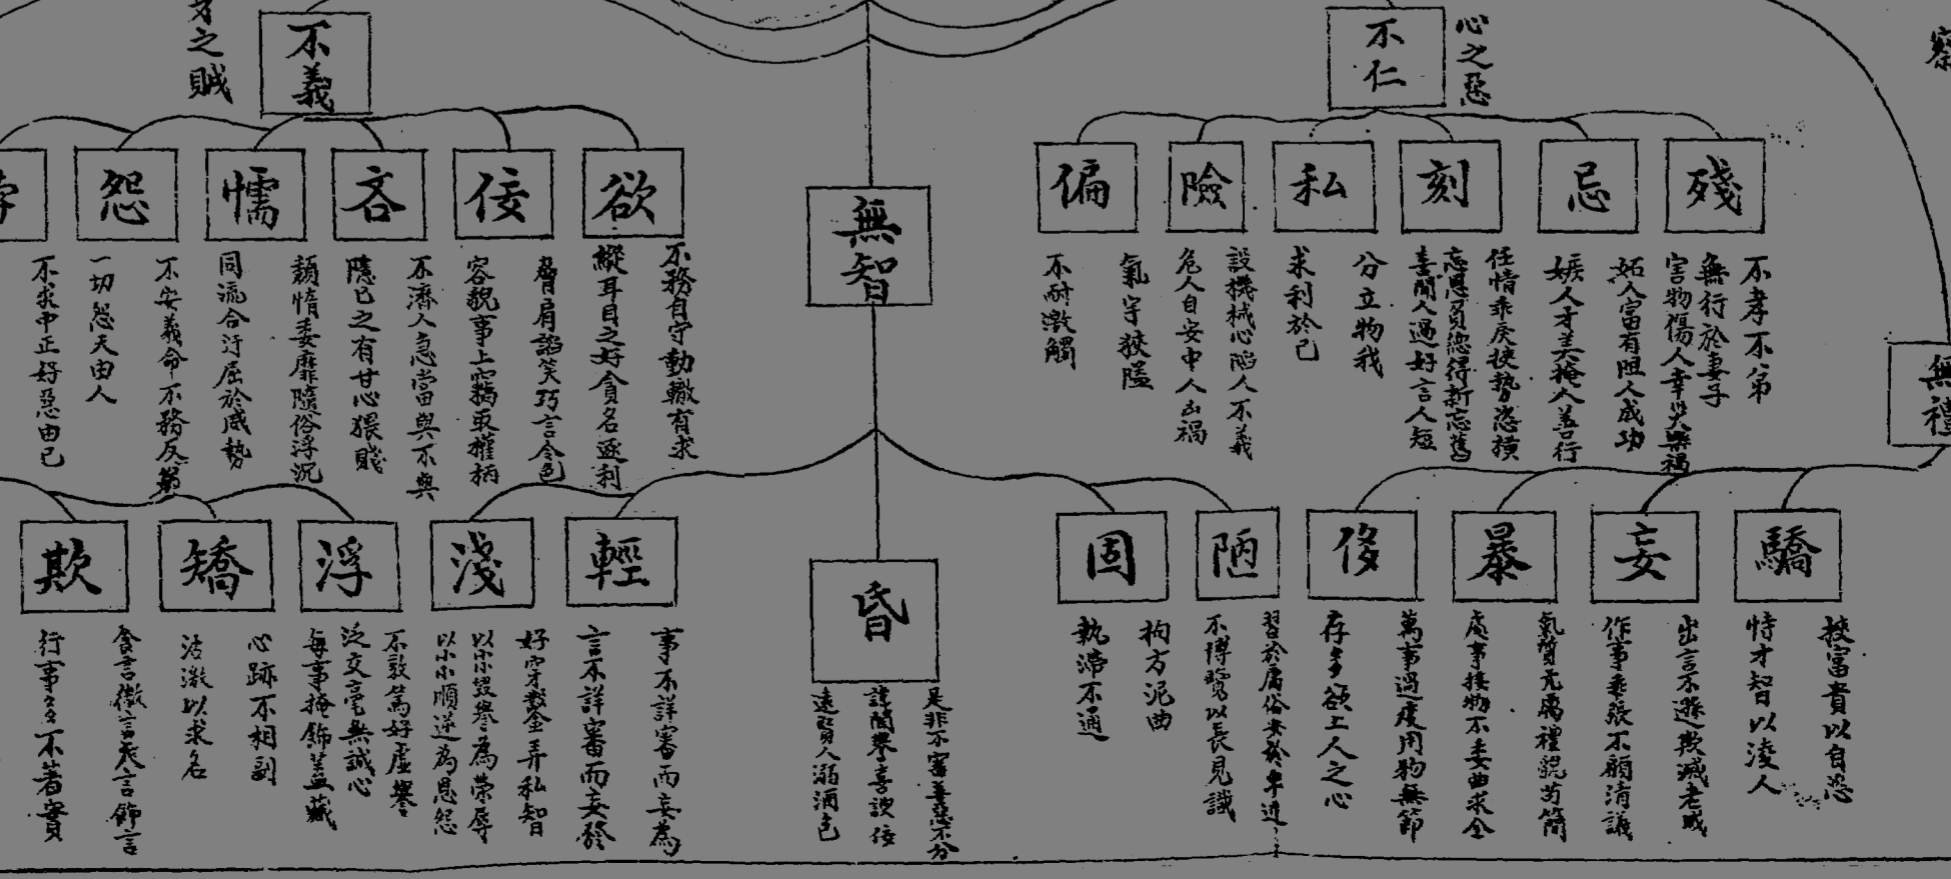 察
心之惡
不仁
殘
不孝不弟
無行於妻子
害物傷人幸災樂禍
忌
妬人富有阻人成功
嫉人才美掩人善行
刻
任情乖戾挾勢恣橫
忘恩負德得新忘舊
喜聞人過好言人短
私
分立物我
求利於己
險
設機械心陷人不義
危人自安中人出禍
偏
氣宇狹隘
不耐激觸
無禮
驕
挾富貴以自恣
恃才智以淩人
妄
出言不遜欺滅老成
作事乖張不顧清議
暴
氣質亢厲禮貌苟簡
處事接物不委曲求全
侈
萬事過度用物無節
存多欲上人之心
陋
習於庸俗安於卑近
不博覽以長見識
固
拘方泥曲
執滯不通
無智
昏
是非不審善惡不分
遠賢人溺酒色
之賊
不義
欲
不務自守動輙有求
縱耳目之好貪名逐利
佞
脅肩諂笑巧言令色
容貌事上竊取權柄
吝
不濟人急當與不與
隱己之有甘心猥賤
懦
頹惰委靡隨俗浮沉
同流合汙屈於威勢
怨
不安義命不務反躬
一切怨天由人
不求中正好惡由己
輕
事不詳審而妄為
言不詳審而妄發
淺
好穿鑿弄私智
以小小毀譽為榮辱
以小小順逆為恩怨
浮
不敦篤好虛譽
泛交毫無誠心
每事掩飾蓋藏
矯
心跡不相副
沽激以求名
欺
行事多不著實